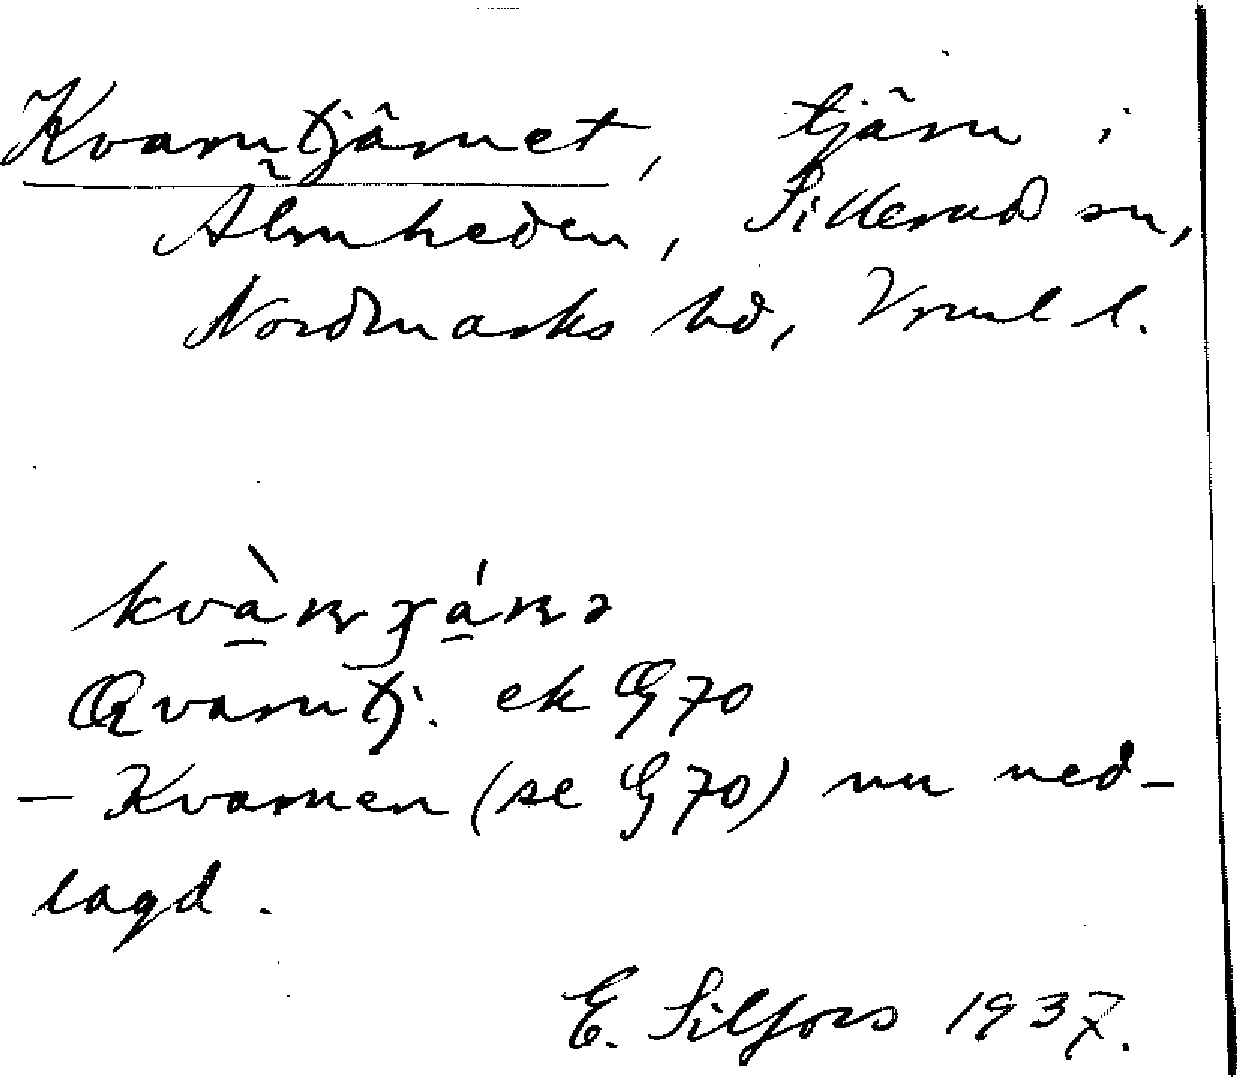 Kvarntjärnet, tjärn i
Älmheden, Sillerud sn,
Nordmarks hd, Vrml l.
kvàɳ ɟáɳə
Qvarntj. ek G 70
– Kvarnen (se G 70) nu ned-
lagd.
E. Silfors 1937.